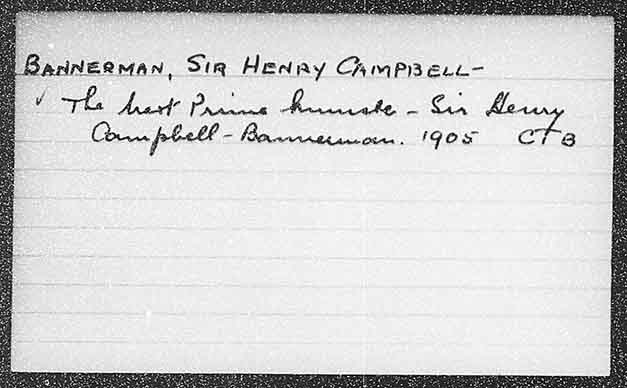 BANNERMAN, SIR HENRY CAMPBELL-
✓ The next Prime Minister - Sir Henry
Campbell-Bannerman. 1905 CTB